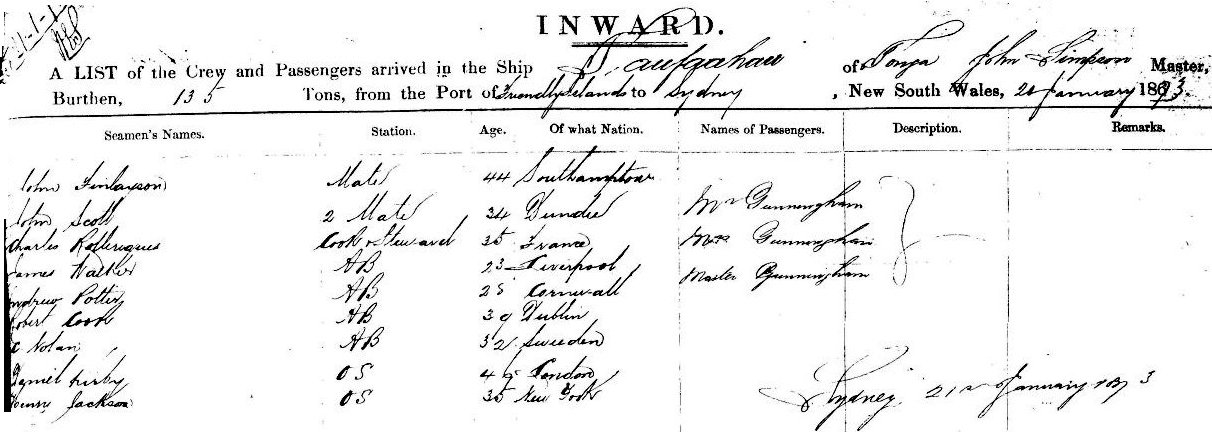 INWARD.
A LIST of the Crew and Passengers arrived in the Ship of Tonga John Simpson Master,
Burthen, 135 Tons, from the Port of Friendly Islands to Sydney, New South Wales, 21 January 1873.
Seamen's Names. Station. Age. Of what Nation. Names of Passengers. Description. Remarks.
John Finlayson Mate 44 Southampton
John Scott 2 Mate 34 Dundee Mr Gunningham
Charles Cook & Steward 35 France Mrs Gunningham
James Walker AB 23 Liverpool Master Gunningham
Andrew Potter AB 28 Cornwall
Robert Cook AB 39 Dublin
Nolan AB 32 Sweden
Daniel Kirby OS 49 London
Henry Jackson OS 35 New York
Sydney 21st January 1873